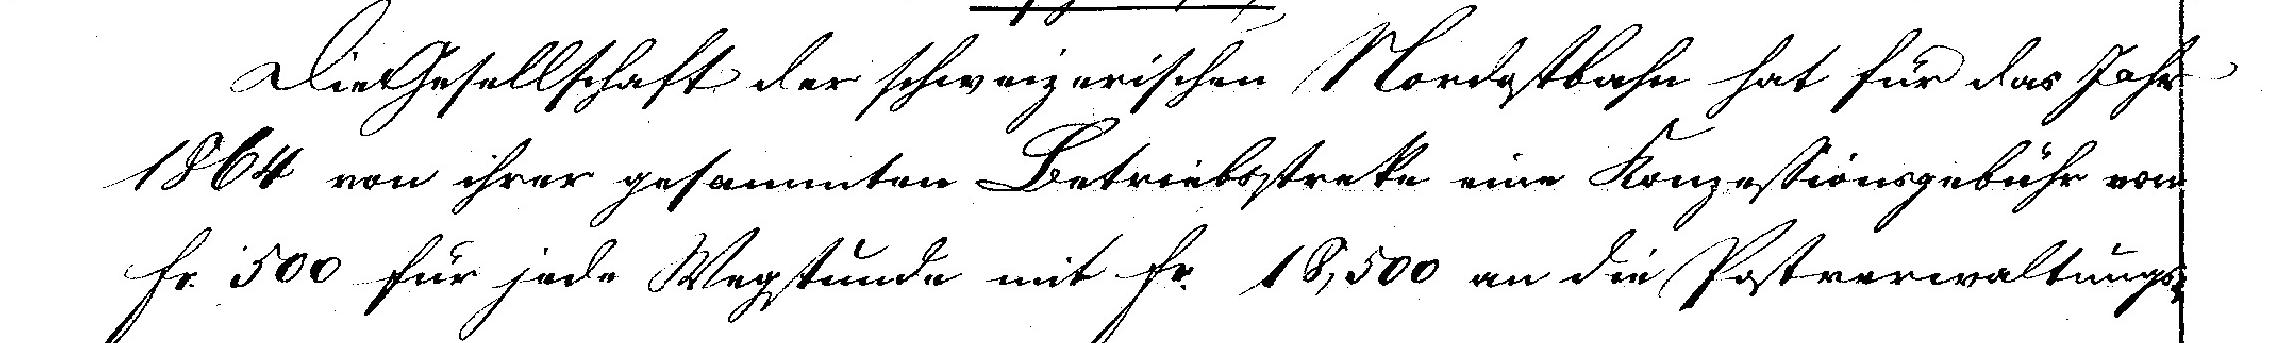 Die Gesellschaft der schweizerischen Nordostbahn hat für das Jahr
1864 von ihrer gesammten Betriebsstreke eine Konzessionsgebühr von
fr. 500 für jede Wegstunde mit fr. 18,500 an die Postverwaltungs-